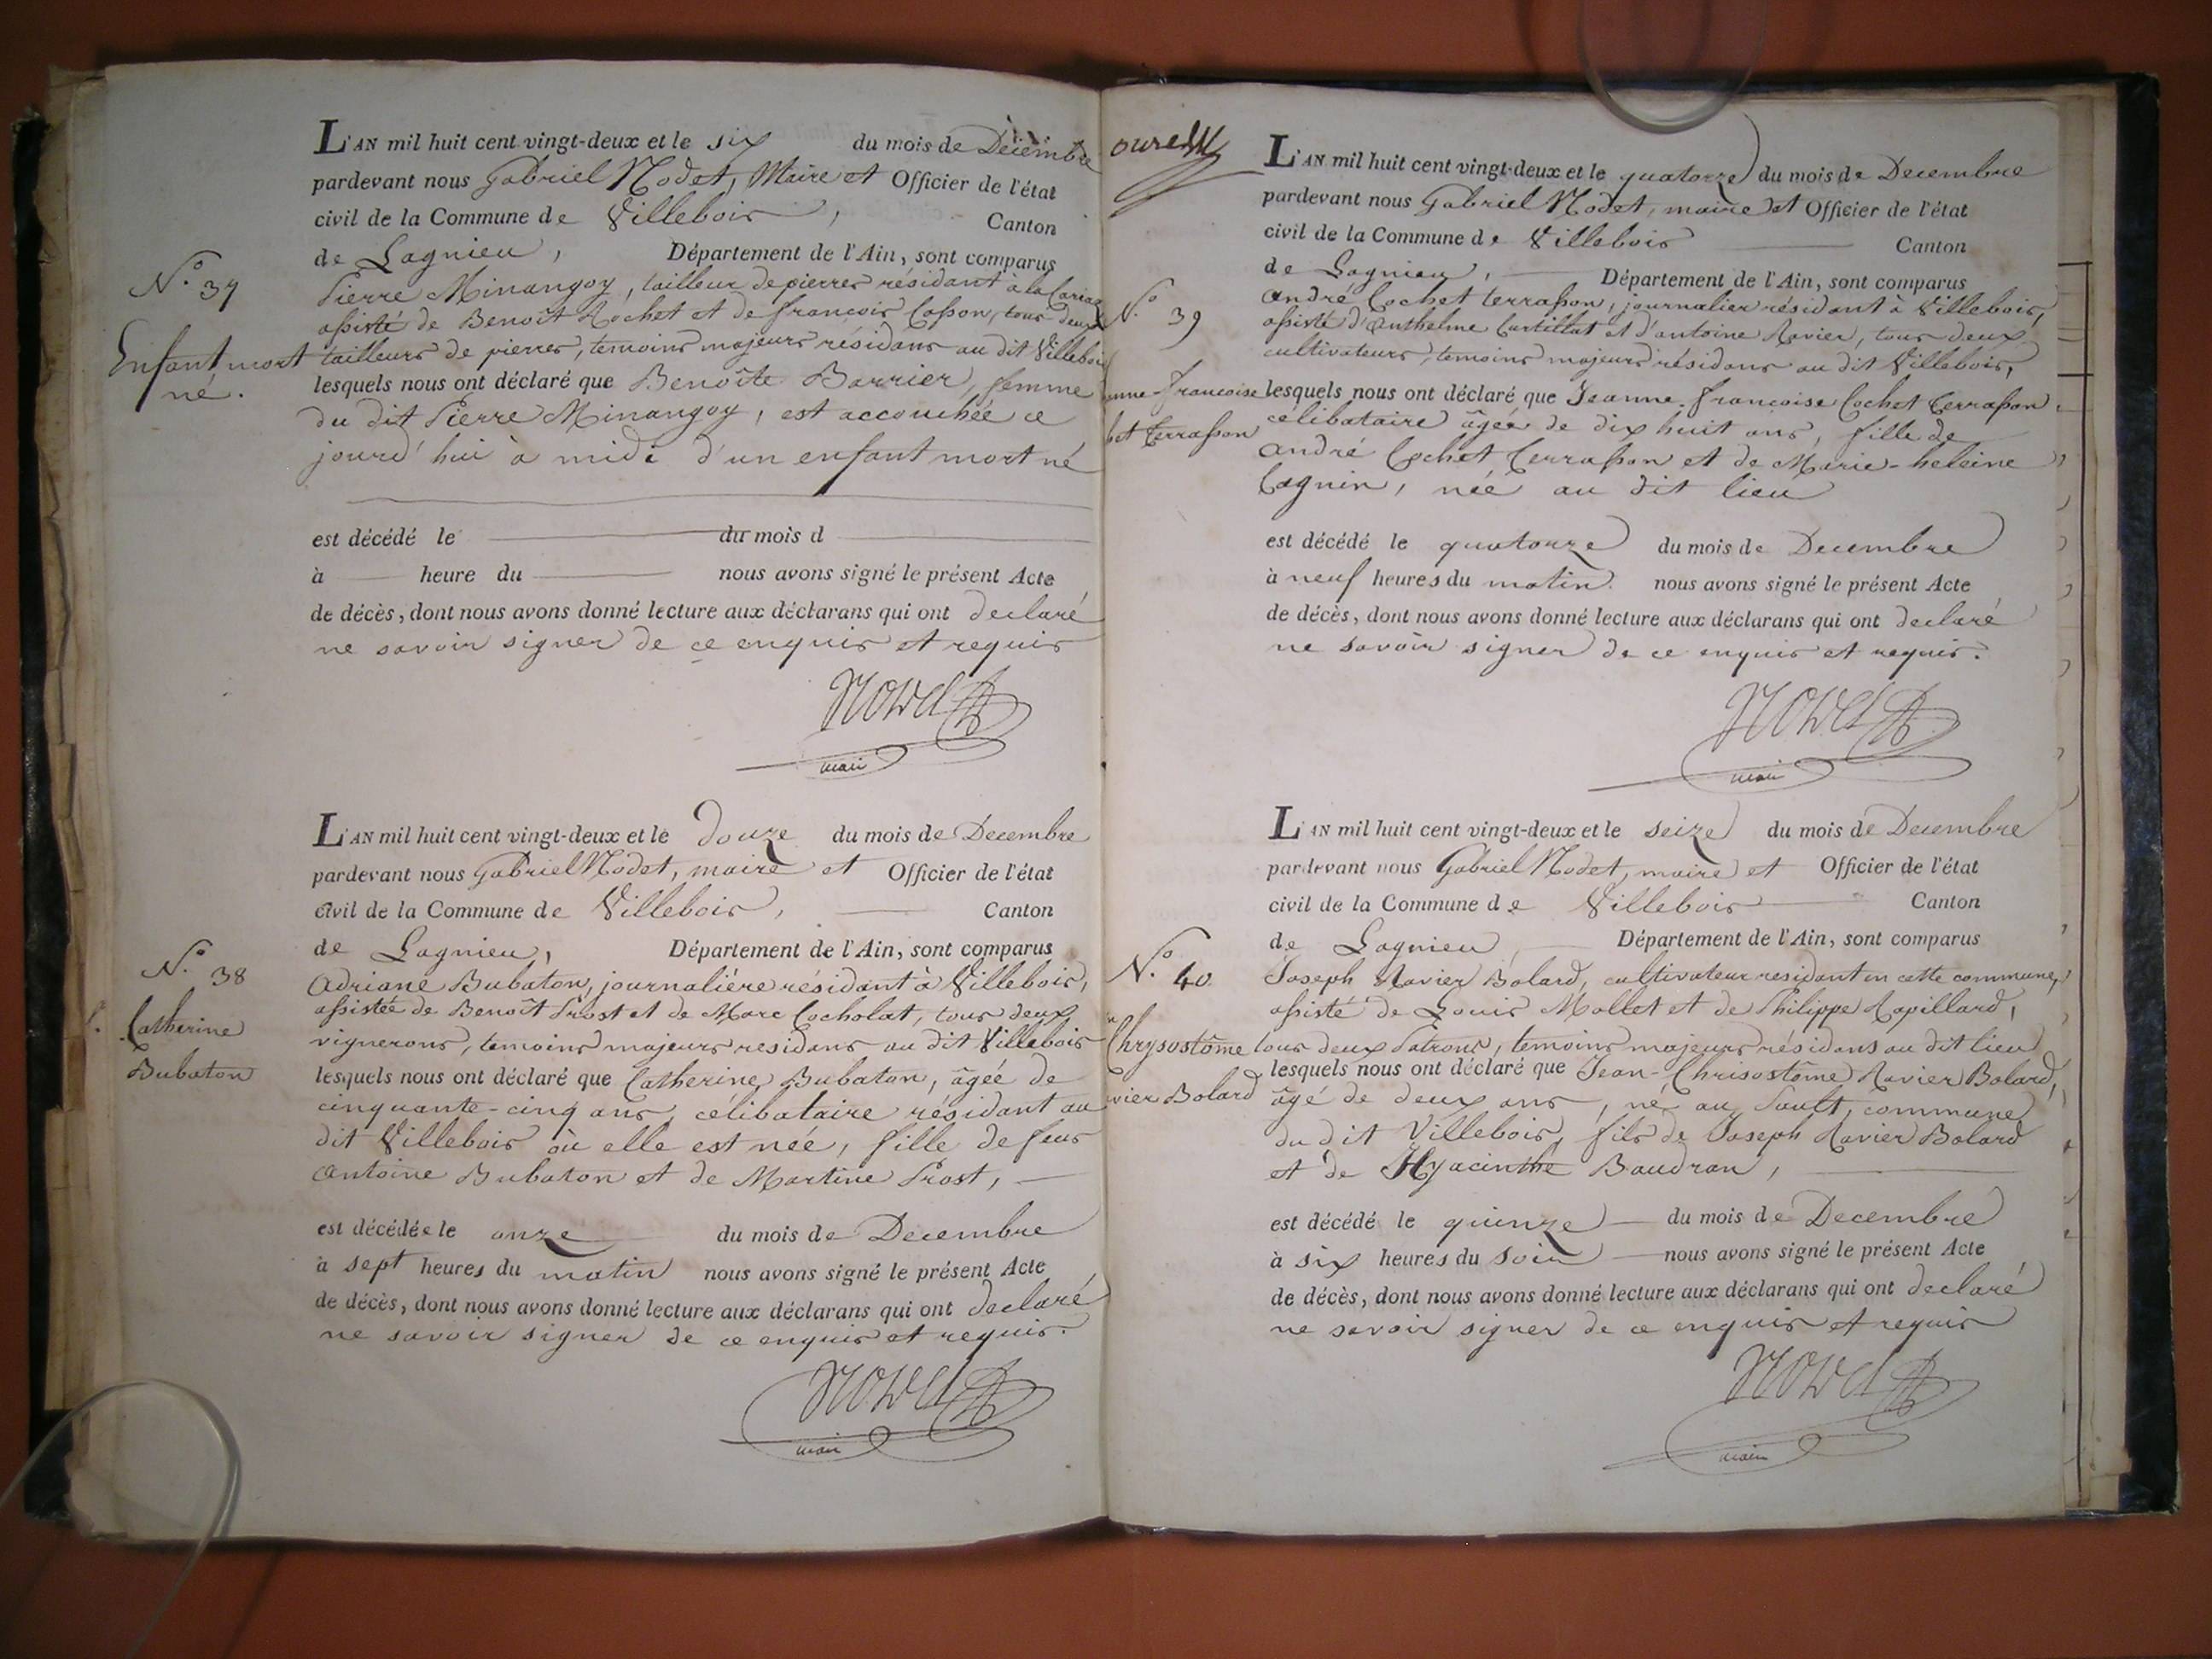 L'AN mil huit cent vingt-deux et le six du mois de Décembre
pardevant nous Gabriel Nodet, Maire et Officier de l'état
civil de la Commune de Villebois, Canton
de Lagnieu, Département de l'Ain, sont comparus
N.° 37
Pierre Minangoy, tailleur de pierres résidant à la
assisté de Benoît Rochet et de françois Casson, tous deux
Enfant mort
né.
tailleurs de pierres, temoins majeurs résidans au dit Villebois
lesquels nous ont déclaré que Benoîte Barrier, femme
du dit Pierre Minangoy, est accouchée ce
jourd'hui à midi d'un enfant mort né
est décédé le du mois d
à heure du nous avons signé le présent Acte
de décès, dont nous avons donné lecture aux déclarans qui ont declaré
ne savoir signer de ce enquis et requis
Nodet
maire
L'AN mil huit cent vingt-deux et le douze du mois de Decembre
pardevant nous Gabriel Nodet, maire et Officier de l'état
civil de la Commune de Villebois, Canton
de Lagnieu, Département de l'Ain, sont comparus
N.° 38
Catherine
Bubaton
Adriane Bubaton, journalière résidant à Villebois,
assistée de Benoît Prost et de Marc Cocholat, tous deux
vignerons, temoins majeurs residans au dit Villebois
lesquels nous ont déclaré que Catherine Bubaton, âgée de
cinquante-cinq ans, célibataire résidant au
dit Villebois où elle est née, fille de feus
Antoine Bubaton et de Martine Prost,
est décédée le onze du mois de Decembre
à sept heures du matin nous avons signé le présent Acte
de décès, dont nous avons donné lecture aux déclarans qui ont declaré
ne savoir signer de ce enquis et requis.
Nodet
maire
L'AN mil huit cent vingt-deux et le quatorze du mois de Decembre
pardevant nous Gabriel Nodet, maire et Officier de l'état
civil de la Commune de Villebois Canton
de Lagnieu, Département de l'Ain, sont comparus
N.° 39
anne-francoise
het Terrasson
André Cochet terrasson, journalier résidant à Villebois,
assisté d'Anthelme Curtillat et d'antoine Ravier, tous deux
cultivateurs, temoins majeurs résidans au dit Villebois,
lesquels nous ont déclaré que Jeanne-francoise Cochet Terrasson
célibataire âgée de dix huit ans, fille de
André Cochet Terrasson et de Marie-heleine
Cagnin, née au dit lieu
est décédé le quatorze du mois de Decembre
à neuf heures du matin nous avons signé le présent Acte
de décès, dont nous avons donné lecture aux déclarans qui ont declaré
ne savoir signer de ce enquis et requis.
Nodet
maire
L'AN mil huit cent vingt-deux et le seize du mois de Decembre
pardevant nous Gabriel Nodet, maire et Officier de l'état
civil de la Commune de Villebois Canton
de Lagnieu, Département de l'Ain, sont comparus
N.° 40
Chrysostôme
vier Bolard
Joseph Ravier Bolard, cultivateur residant en cette commune,
assisté de Louis Mollet et de Philippe Rapillard,
tous deux Patrons, temoins majeurs résidans au dit lieu
lesquels nous ont déclaré que Jean-Chrisostôme Ravier Bolard,
âgé de deux ans, né au Sault, commune
du dit Villebois, fils de Joseph Ravier Bolard
et de Hyacinthe Baudran,
est décédé le quinze du mois de Decembre
à six heures du soir nous avons signé le présent Acte
de décès, dont nous avons donné lecture aux déclarans qui ont declaré
ne savoir signer de ce enquis et requis
Nodet
maire